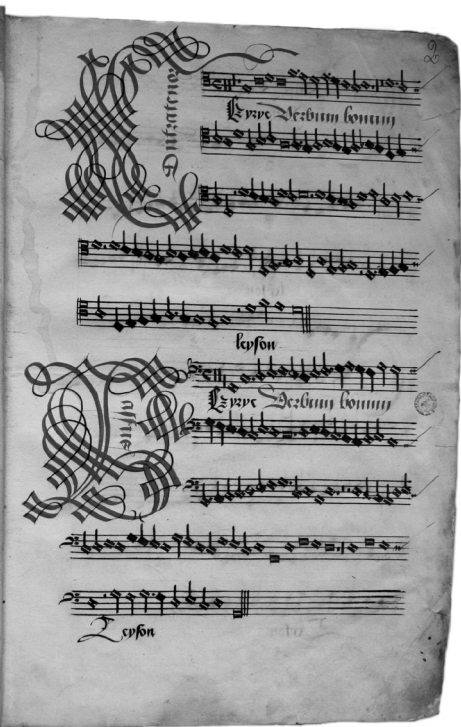 2
Contratenor
Kyrye Verbum bonum
leyson
Bassus
Kyrye Verbum bonum
Leyson